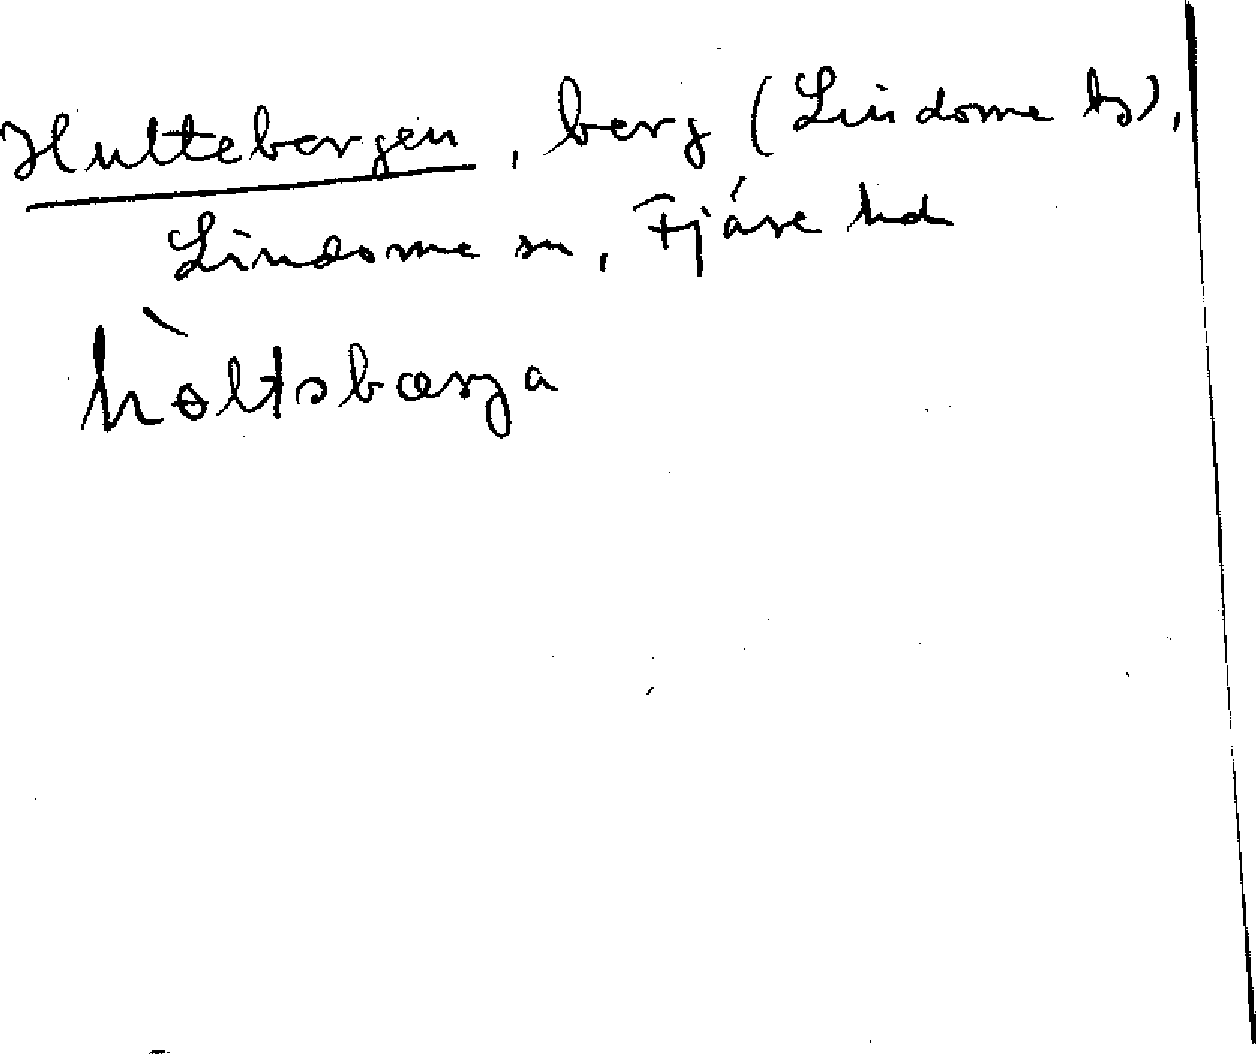 Hultebergen, berg (Lindome by),
Lindome sn, Fjäre hd
hòltəbærja